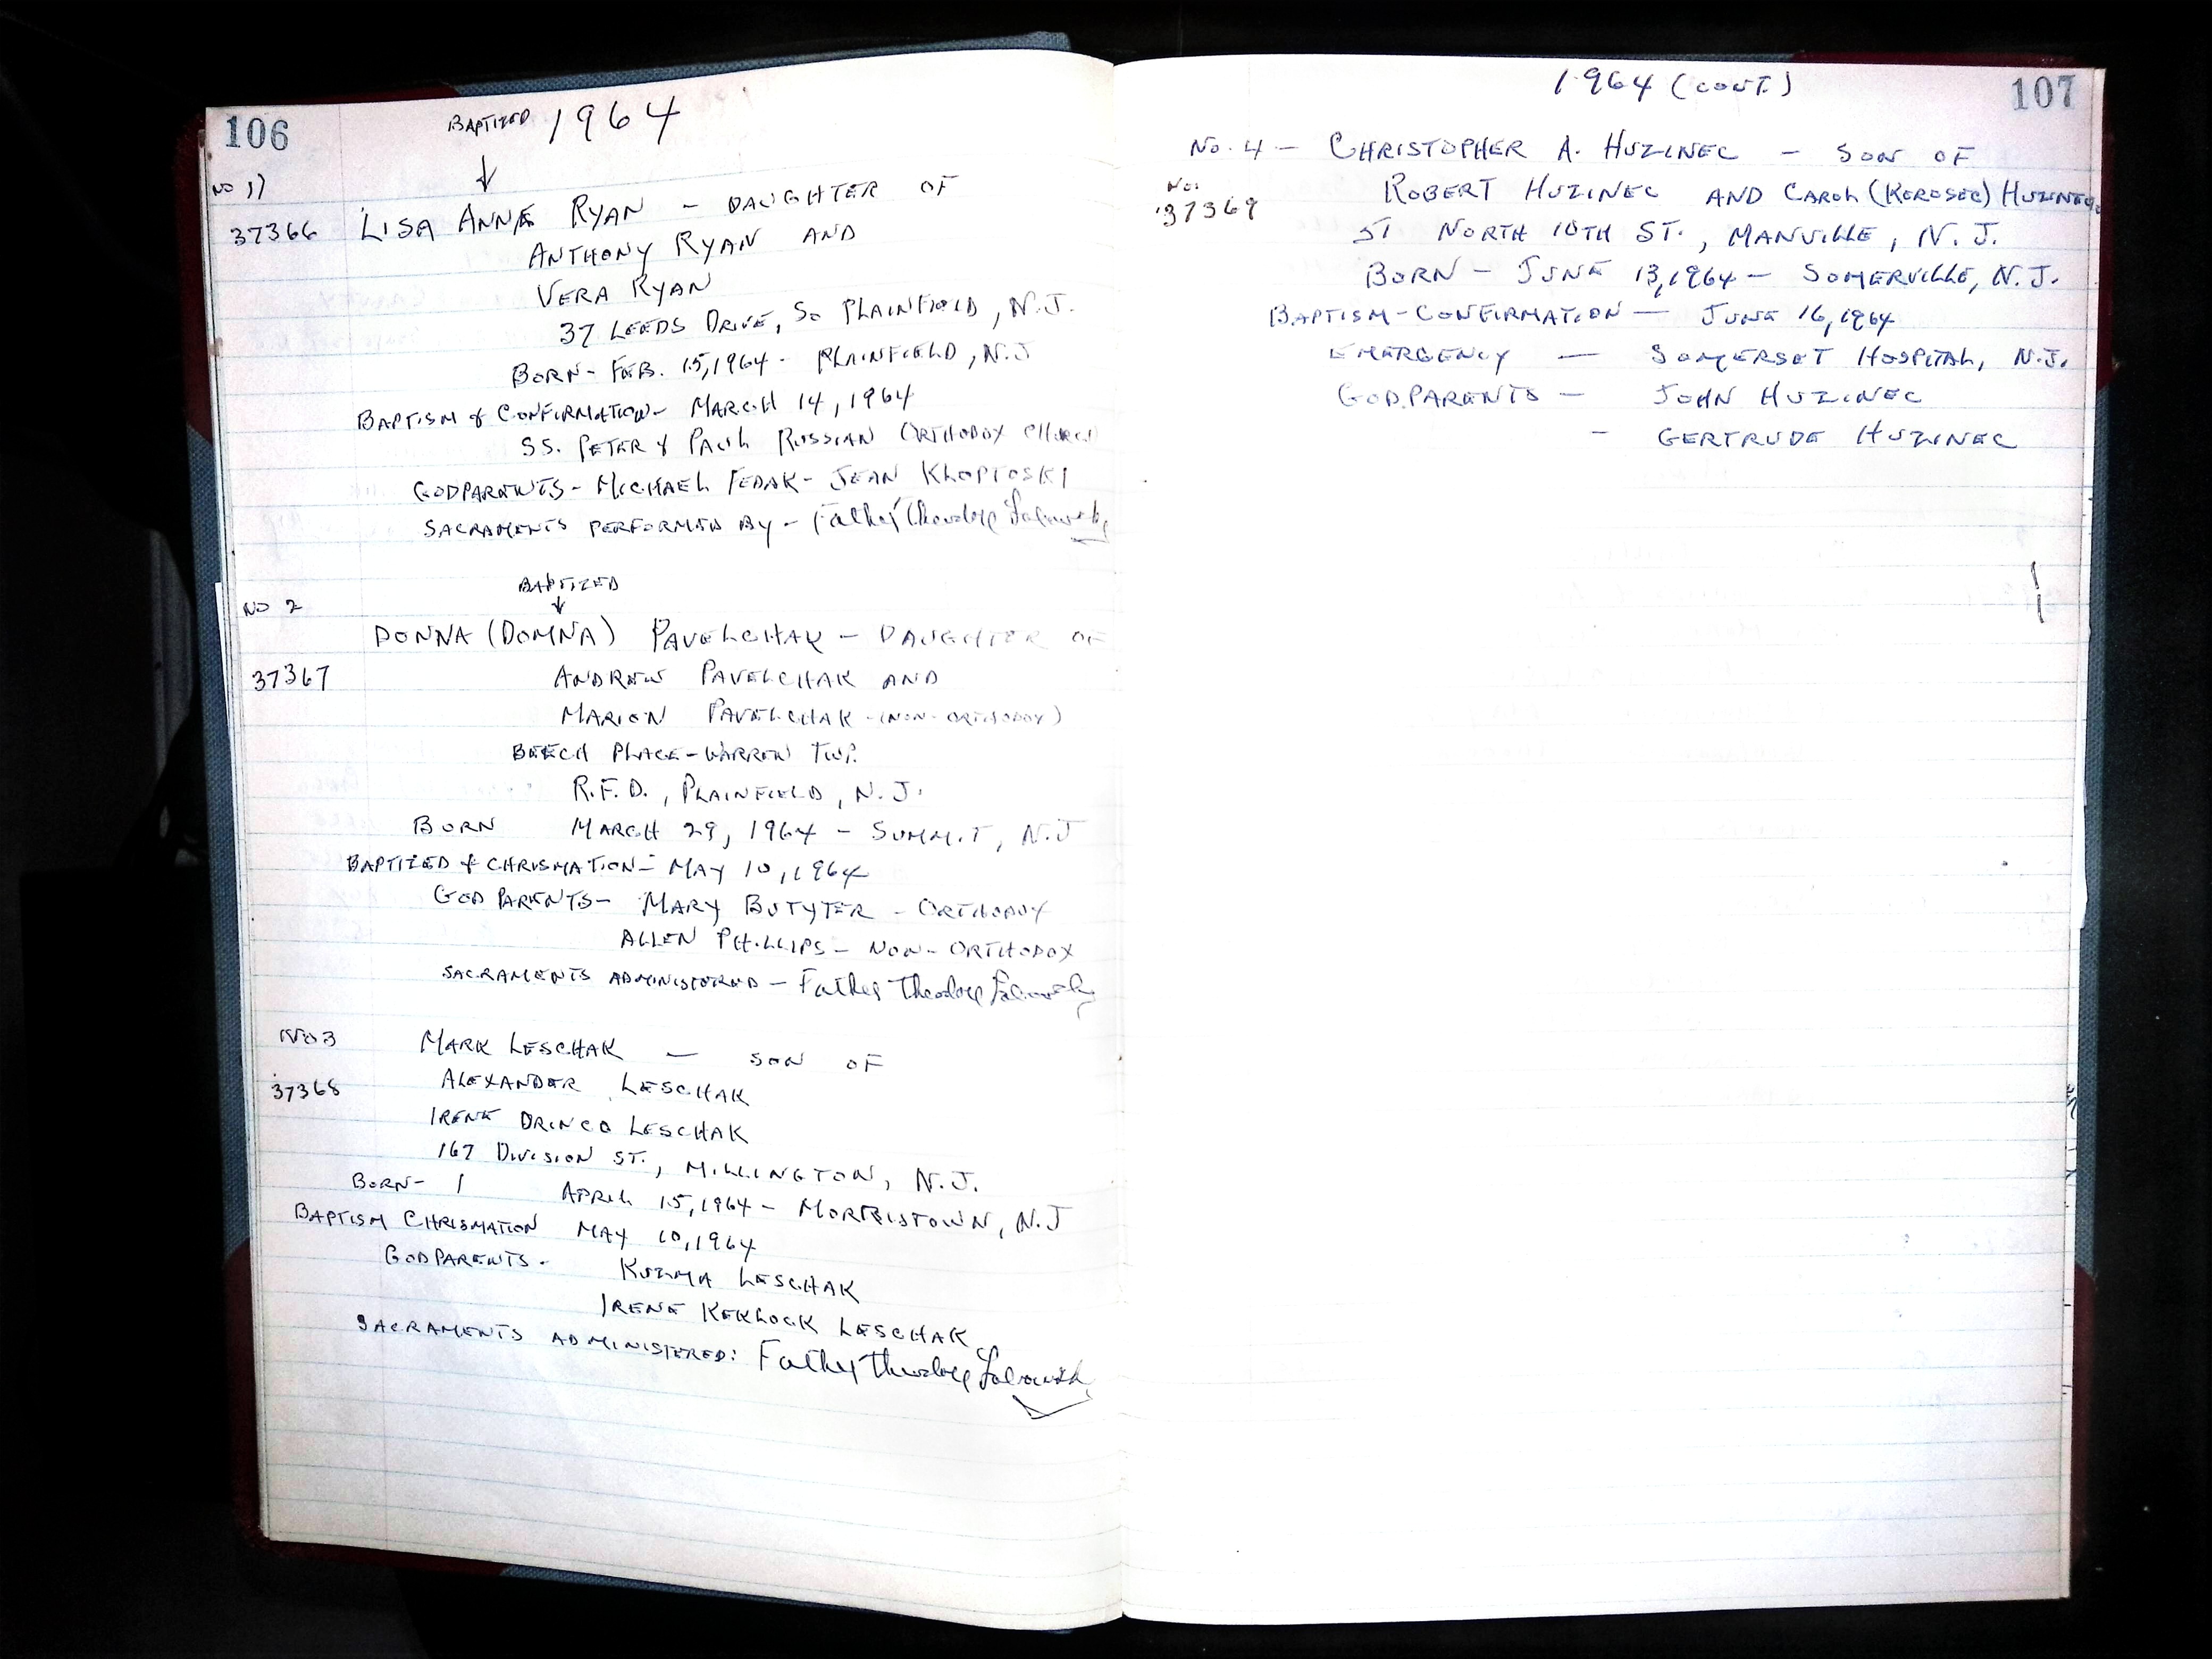 106
BAPTIZED 1964
NO 1)
37366 LISA ANNE RYAN - DAUGHTER OF
ANTHONY RYAN AND
VERA RYAN
37 LEEDS DRIVE, SO PLAINFIELD, N.J.
BORN - FEB. 15, 1964 - PLAINFIELD, N.J
BAPTISM & CONFIRMATION - MARCH 14, 1964
SS. PETER & PAUL RUSSIAN ORTHODOX CHURCH
GODPARENTS - MICHAEL FEDAK - JEAN KLOPTOSKI
SACRAMENTS PERFORMED BY - Father Theodore
BAPTIZED
NO 2
DONNA (DOMNA) PAVELCHAK - DAUGHTER OF
37367 ANDREW PAVELCHAK AND
MARION PAVELCHAK - (NON-ORTHODOX)
BEECH PLACE - WARREN TWP.
R.F.D., PLAINFIELD, N.J.
BORN MARCH 29, 1964 - SUMMIT, N.J
BAPTIZED & CHRISMATION - MAY 10, 1964
GOD PARENTS - MARY BUTYTER - ORTHODOX
ALLEN PHILLIPS - NON-ORTHODOX
SACRAMENTS ADMINISTERED - Father Theodore
NO 3 MARK LESCHAK - SON OF
37368 ALEXANDER LESCHAK
IRENE DRINCO LESCHAK
167 DIVISION ST., MILLINGTON, N.J.
BORN - APRIL 15, 1964 - MORRISTOWN, N.J
BAPTISM CHRISMATION MAY 10, 1964
GODPARENTS - KUZMA LESCHAK
IRENE KEKLOCK LESCHAK
SACRAMENTS ADMINISTERED: Father Theodore
1964 (CONT.) 107
No. 4 - CHRISTOPHER A. HUZINEC - SON OF
No. ROBERT HUZINEC AND CAROL (KEROSEC) HUZINEC
37369
51 NORTH 10TH ST., MANVILLE, N.J.
BORN - JUNE 13, 1964 - SOMERVILLE, N.J.
BAPTISM - CONFIRMATION - JUNE 16, 1964
EMERGENCY - SOMERSET HOSPITAL, N.J.
GODPARENTS - JOHN HUZINEC
- GERTRUDE HUZINEC